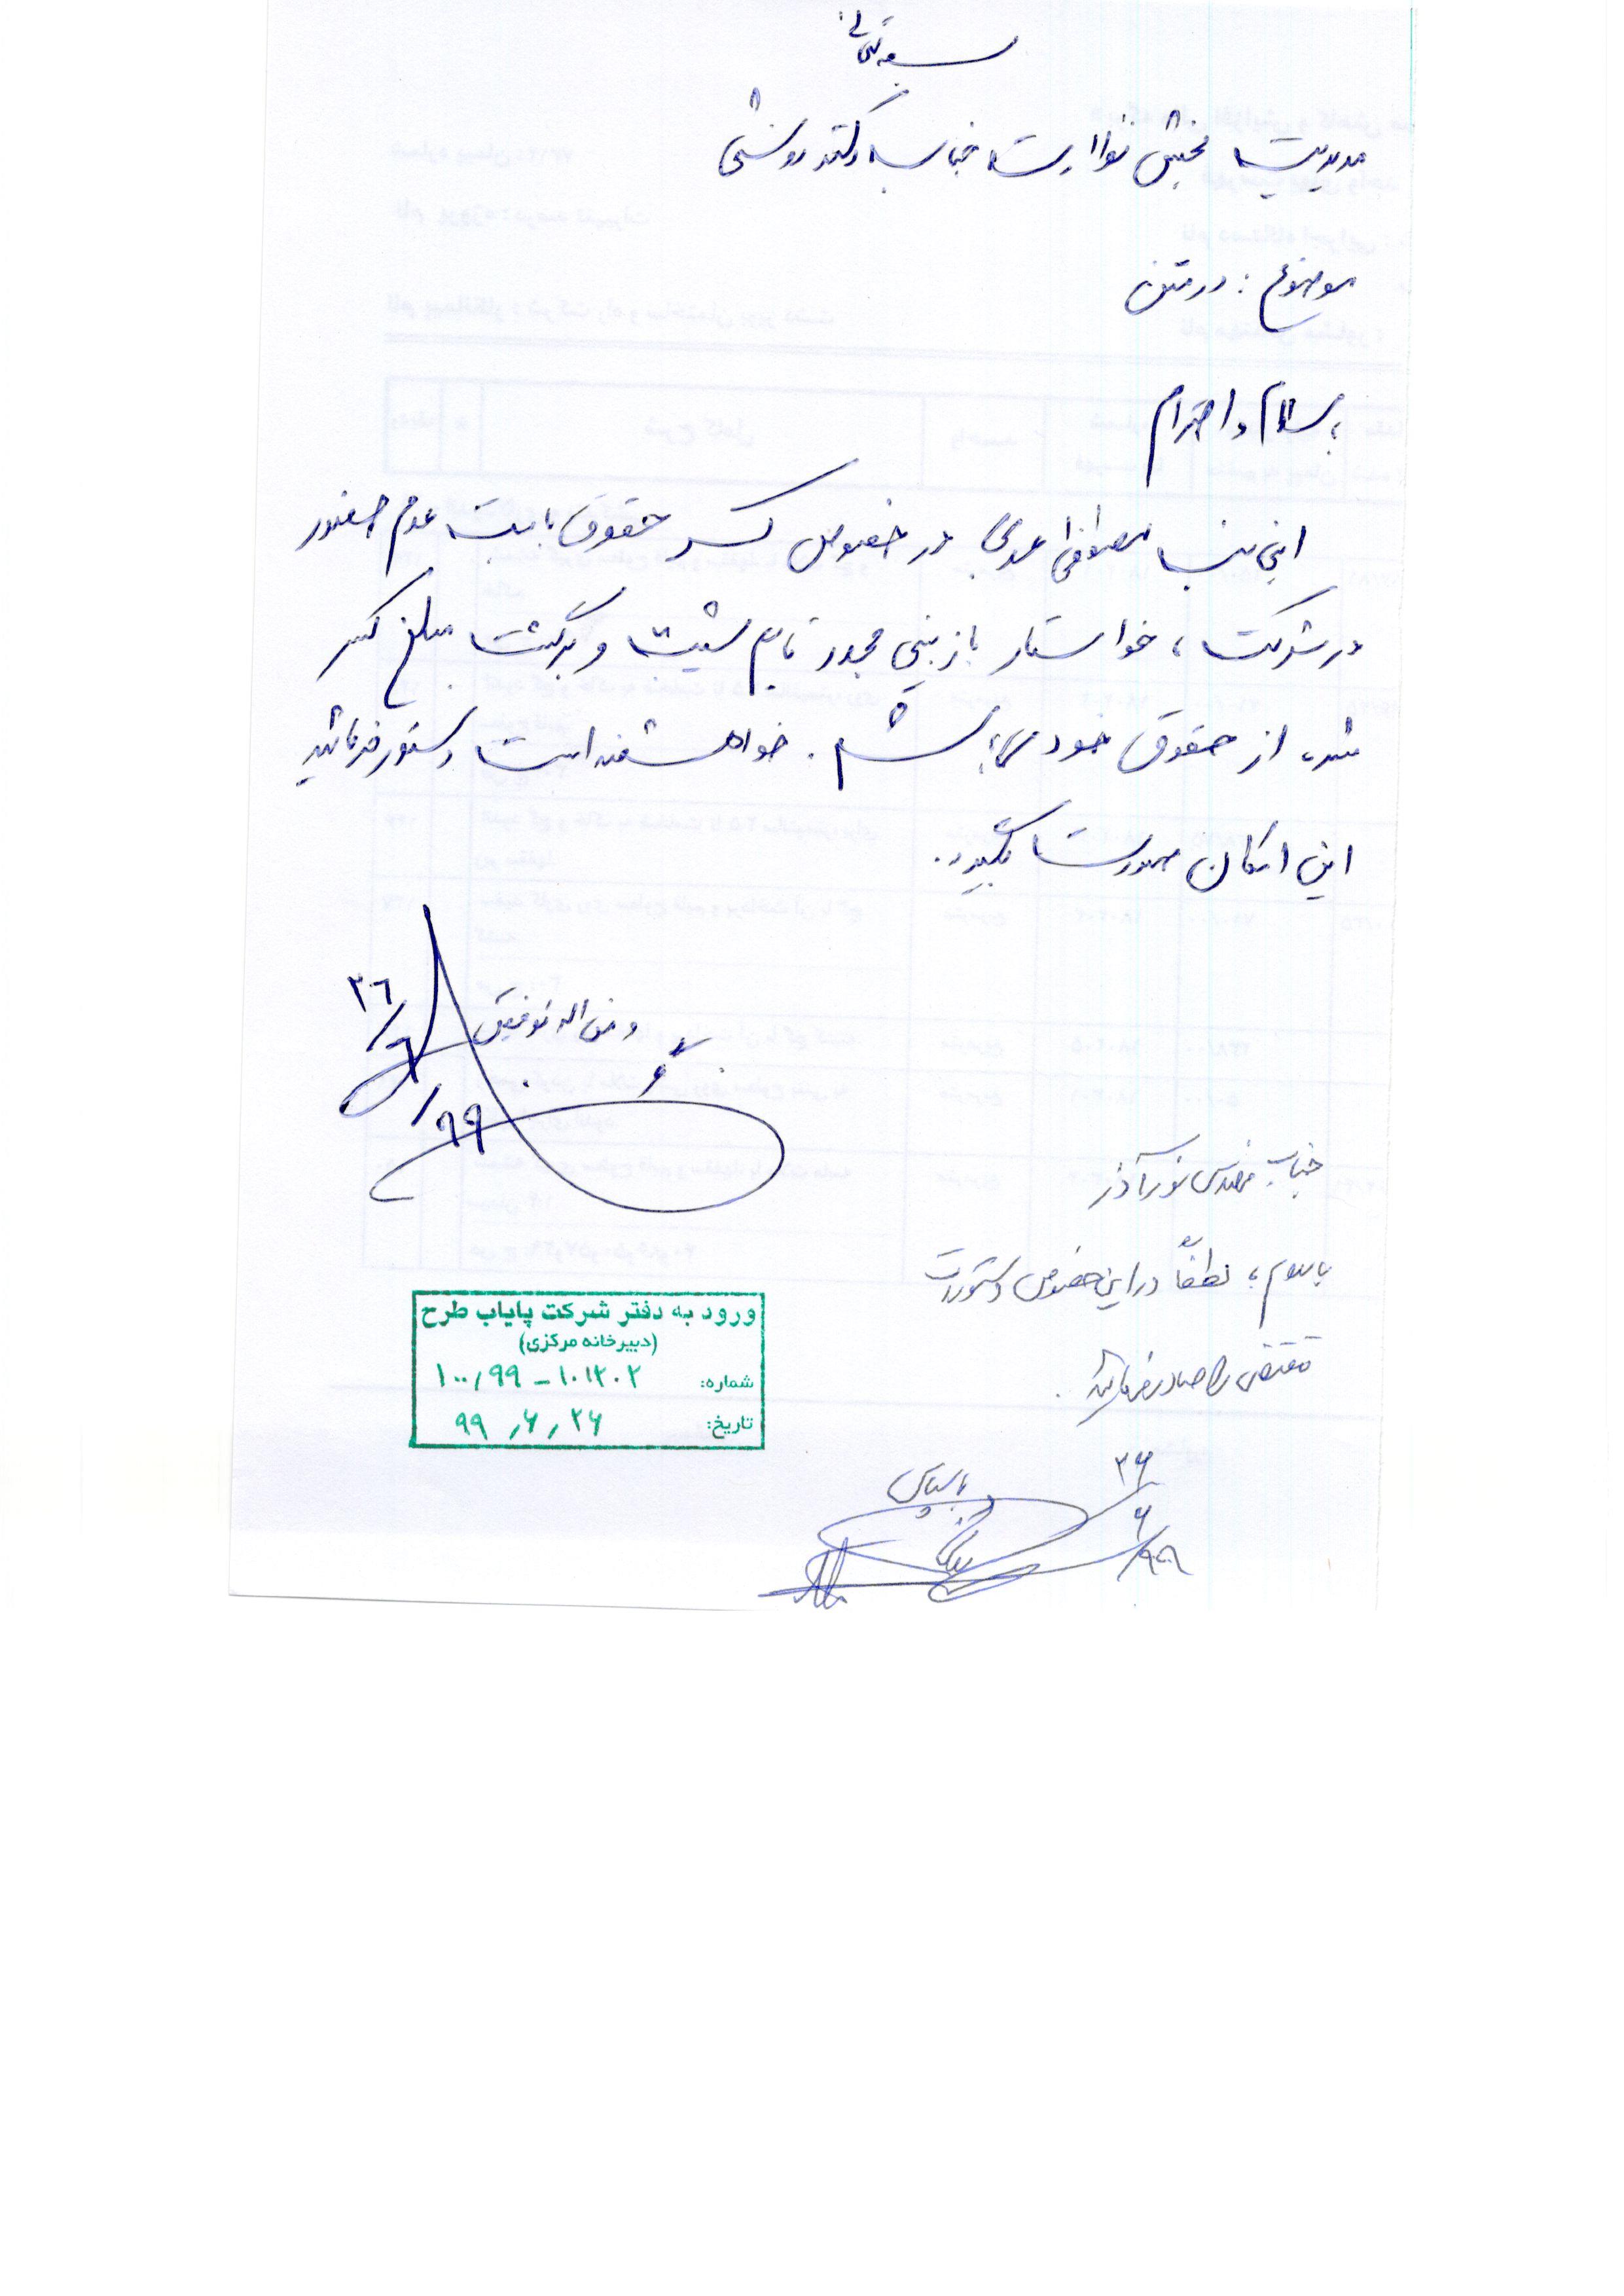 بسمه تعالی
مدیریت بخش نظارت جناب دکتر روشنی
موضوع : در متن
با سلام و احترام
اینجانب مصطفی عبدی در خصوص کسر حقوق بابت عدم حضور
در شرکت ، خواستار بازبینی مجدد تایم شیت و برگشت مبلغ کسر
شده از حقوق خود می باشم . خواهشمند است دستور فرمائید
این امکان صورت بگیرد .
و من اله توفیق
۲۶/۶/۹۹
جناب مهندس نورآذر
با سلام ، لطفاً در این خصوص دستورات
مقتضی را صادر فرمائید .
با سپاس
۲۶/۶/۹۹
ورود به دفتر شرکت پایاب طرح
(دبیرخانه مرکزی)
شماره: ۱۰۰/۹۹ - ۱۰۱۲۰۲
تاریخ: ۹۹/۶/۲۶